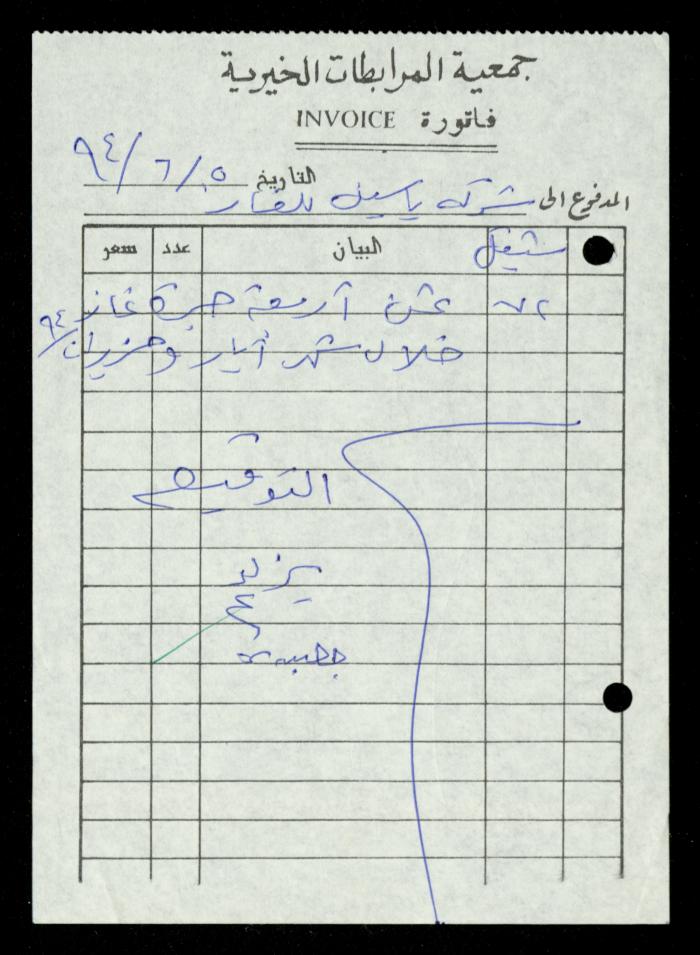 جمعية المرابطات الخيرية
فاتورة INVOICE
التاريخ ١٥/٦/٩٤
المدفوع الى شركة ياسين للغاز
شيقل البيان عدد سعر
٧٢ ثمن أربعة جرة غاز
خلال شهر أيار وحزيران/٩٤
التوقيع
يزيد